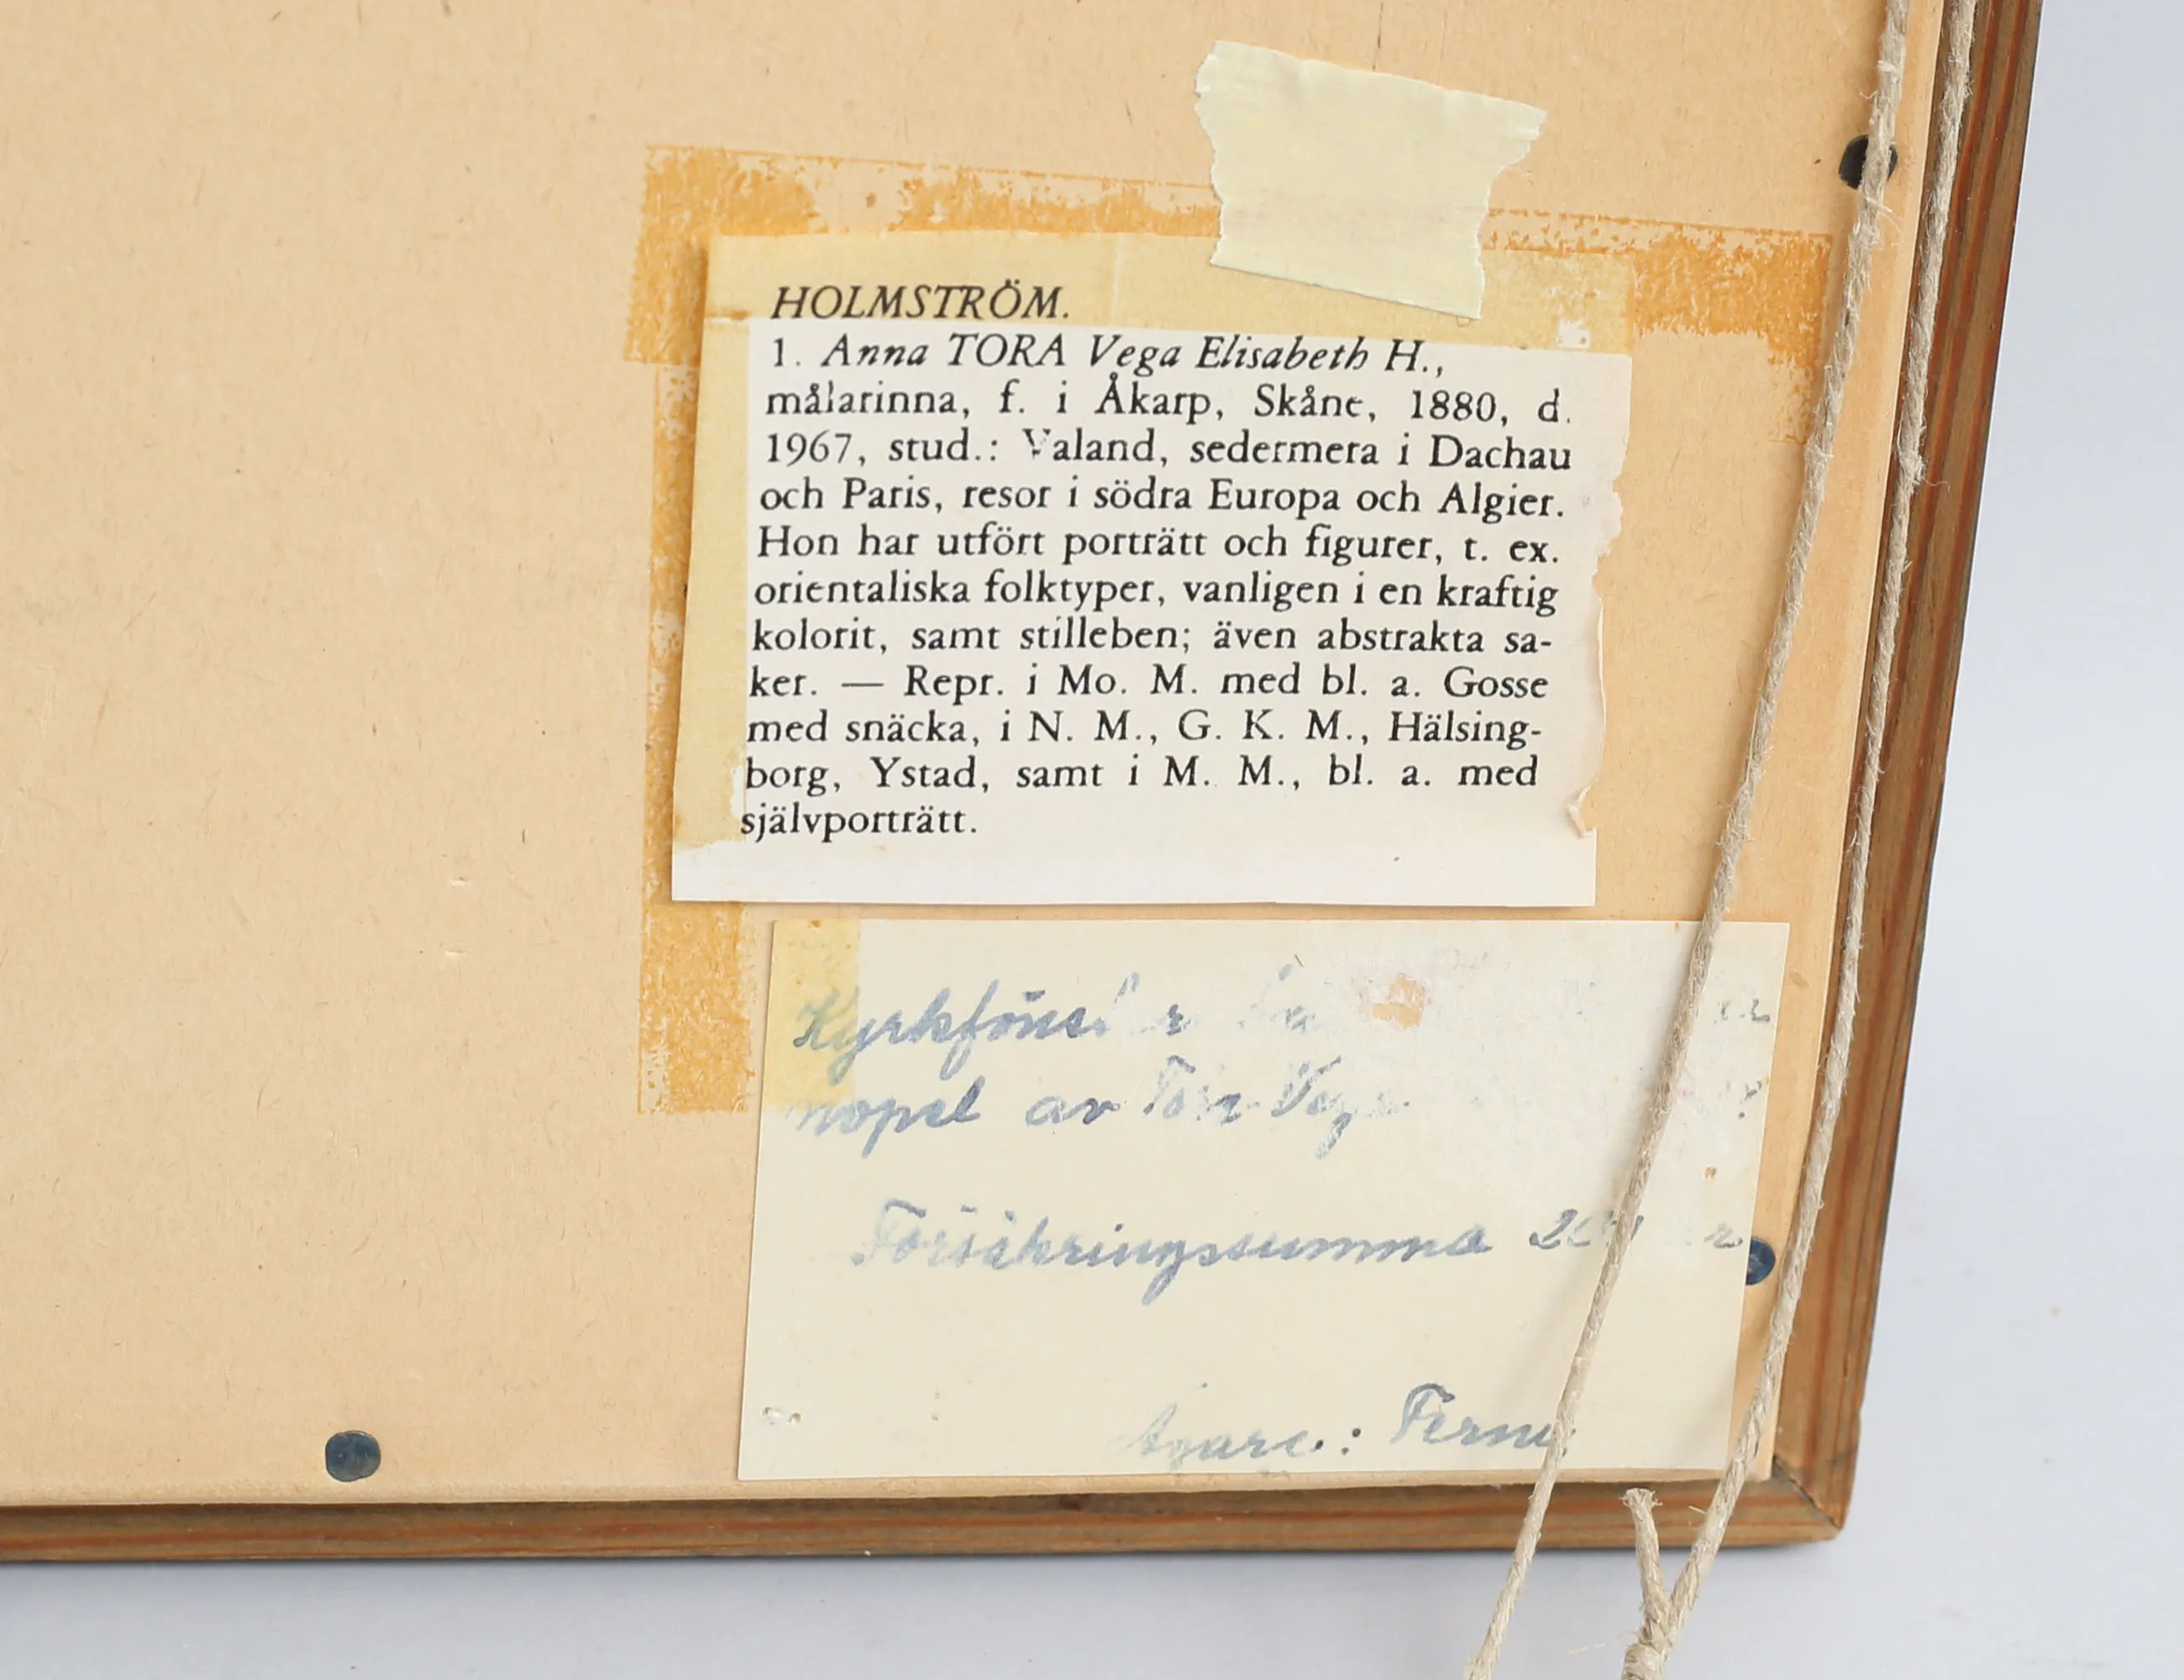 HOLMSTRÖM.
1. Anna TORA Vega Elisabeth H.,
målarinna, f. i Åkarp, Skåne, 1880, d.
1967, stud.: Valand, sedermera i Dachau
och Paris, resor i södra Europa och Algier.
Hon har utfört porträtt och figurer, t. ex.
orientaliska folktyper, vanligen i en kraftig
kolorit, samt stilleben; även abstrakta sa-
ker. — Repr. i Mo. M. med bl. a. Gosse
med snäcka, i N. M., G. K. M., Hälsing-
borg, Ystad, samt i M. M., bl. a. med
självporträtt.
Kyrkfönster
nopel av Tora Vega
Försäkringssumma
Ägare: